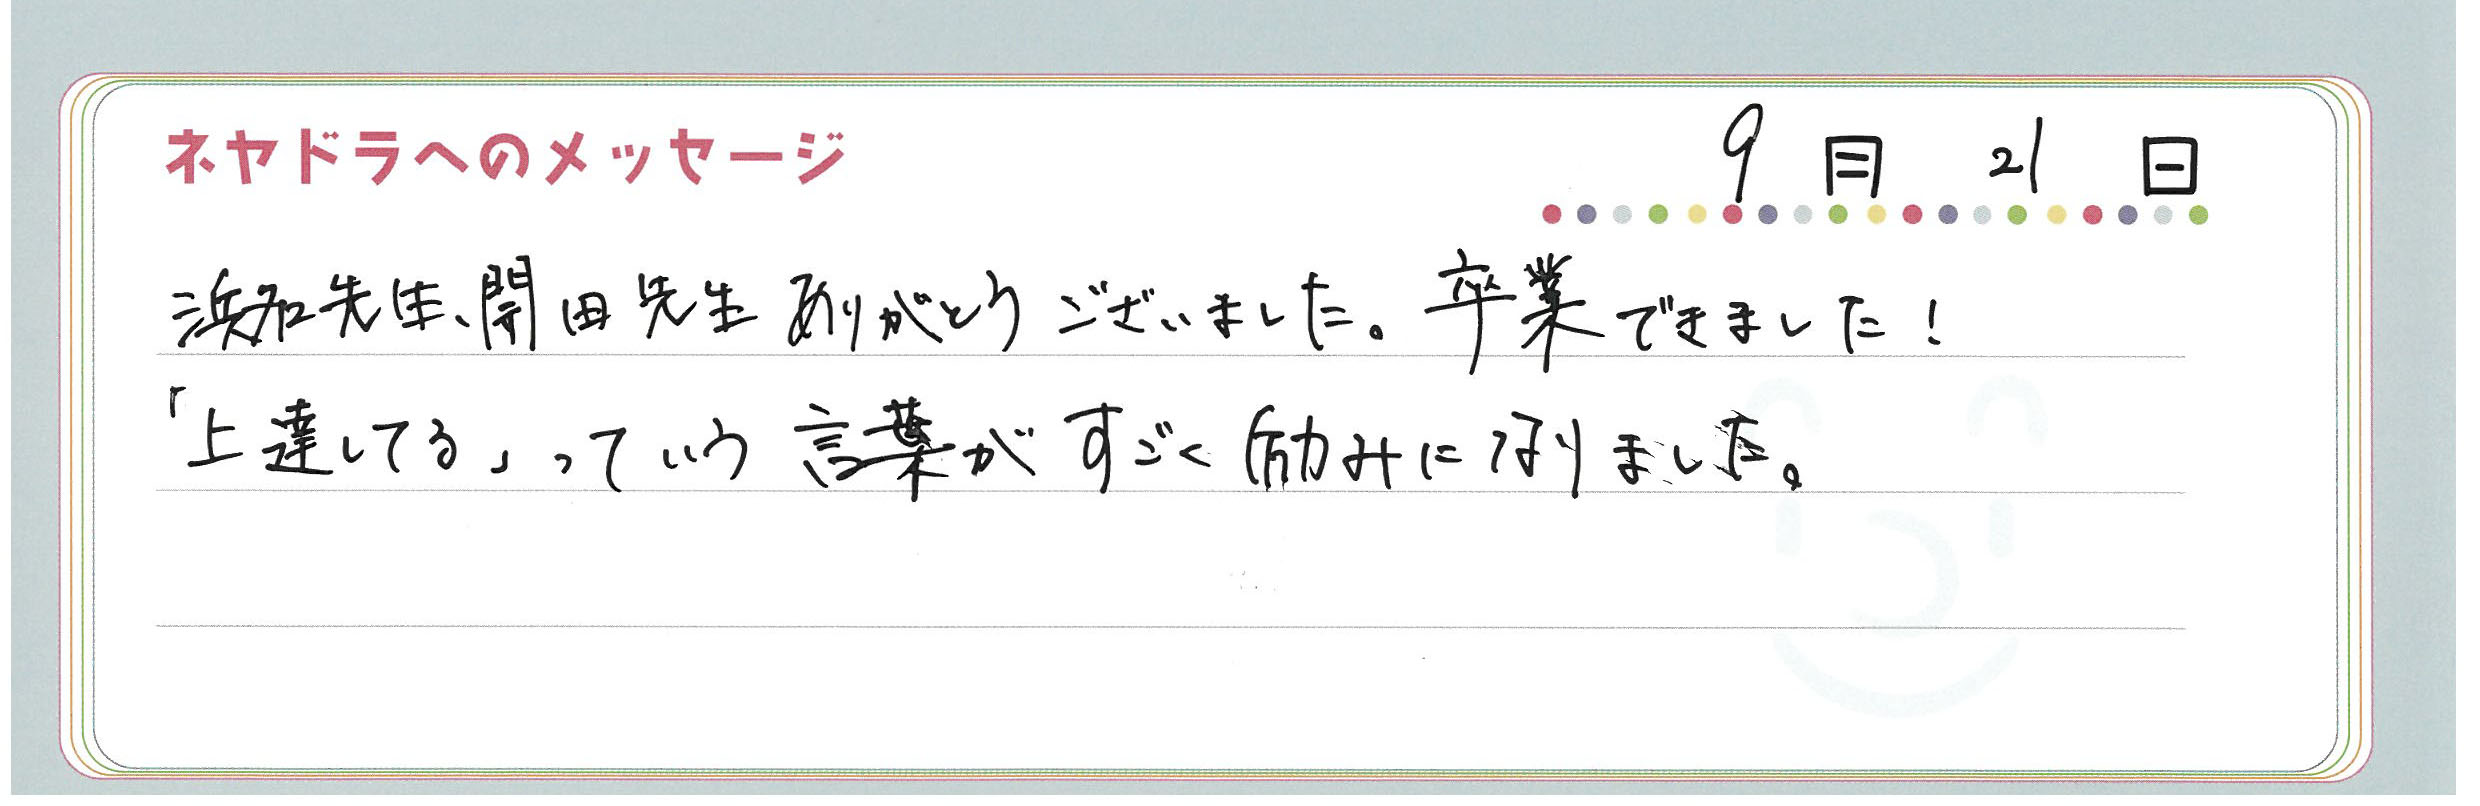 ネヤドラへのメッセージ
9月 21日
浜名先生、開田先生 ありがとうございました。卒業できました！
「上達してる」っていう言葉がすごく励みになりました。